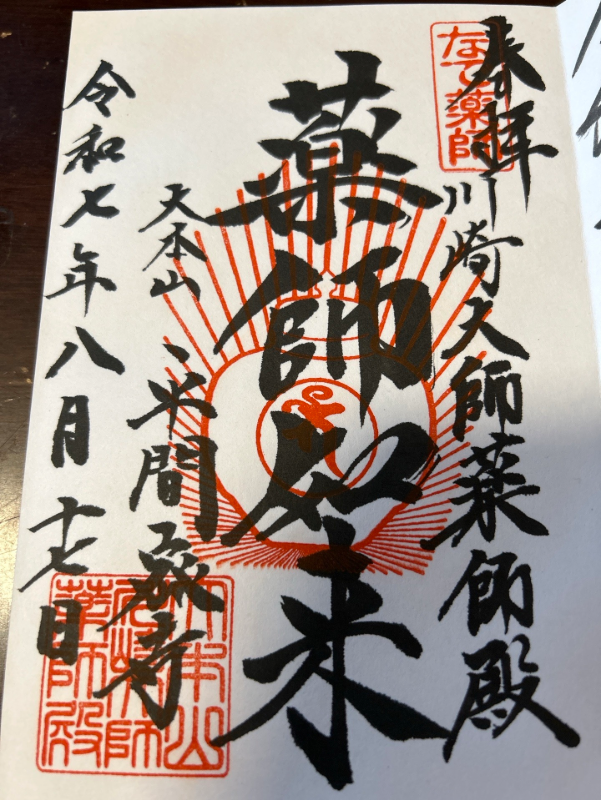 奉拝
なで薬師
川崎大師薬師殿
薬師如来
大本山
平間寺
令和七年八月十七日
大本山
川崎大師
薬師殿